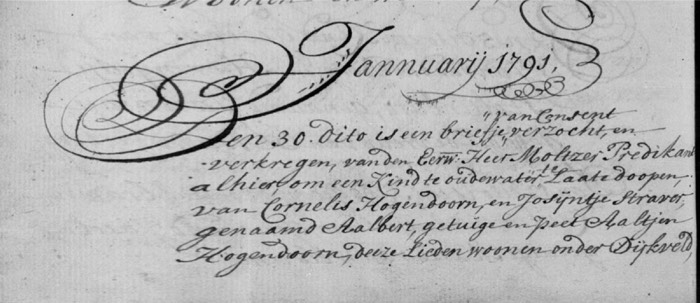 Jannuarij 1791,
van Consent
en 30. dito is een briefje, verzocht, en
verkregen, van den Eerw: Heer Moltzer Predikant
alhier, om een Kind te oudewater, te Laate doopen,
van Cornelis Hogendoorn, en Josijntje Straver,
genaamd Aalbert, getuige en peet Aaltjen
Hogendoorn, deeze Lieden woonen onder Dijkveld,